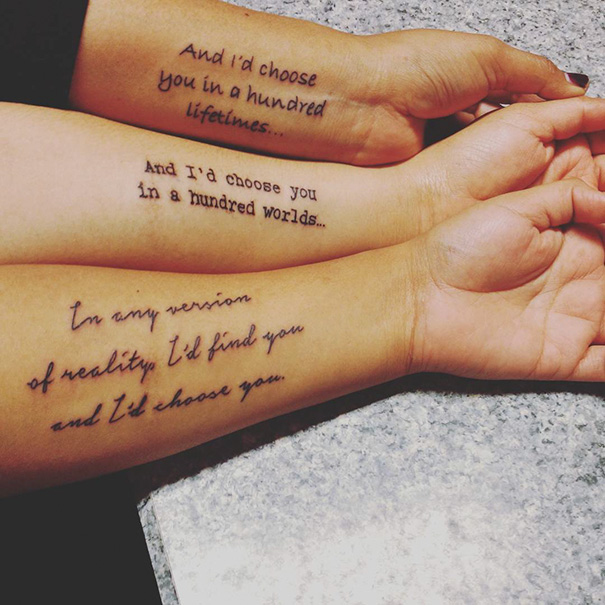 And I'd choose
you in a hundred
lifetimes...
And I'd choose you
in a hundred worlds...
In any version
of reality, I'd find you
and I'd choose you.